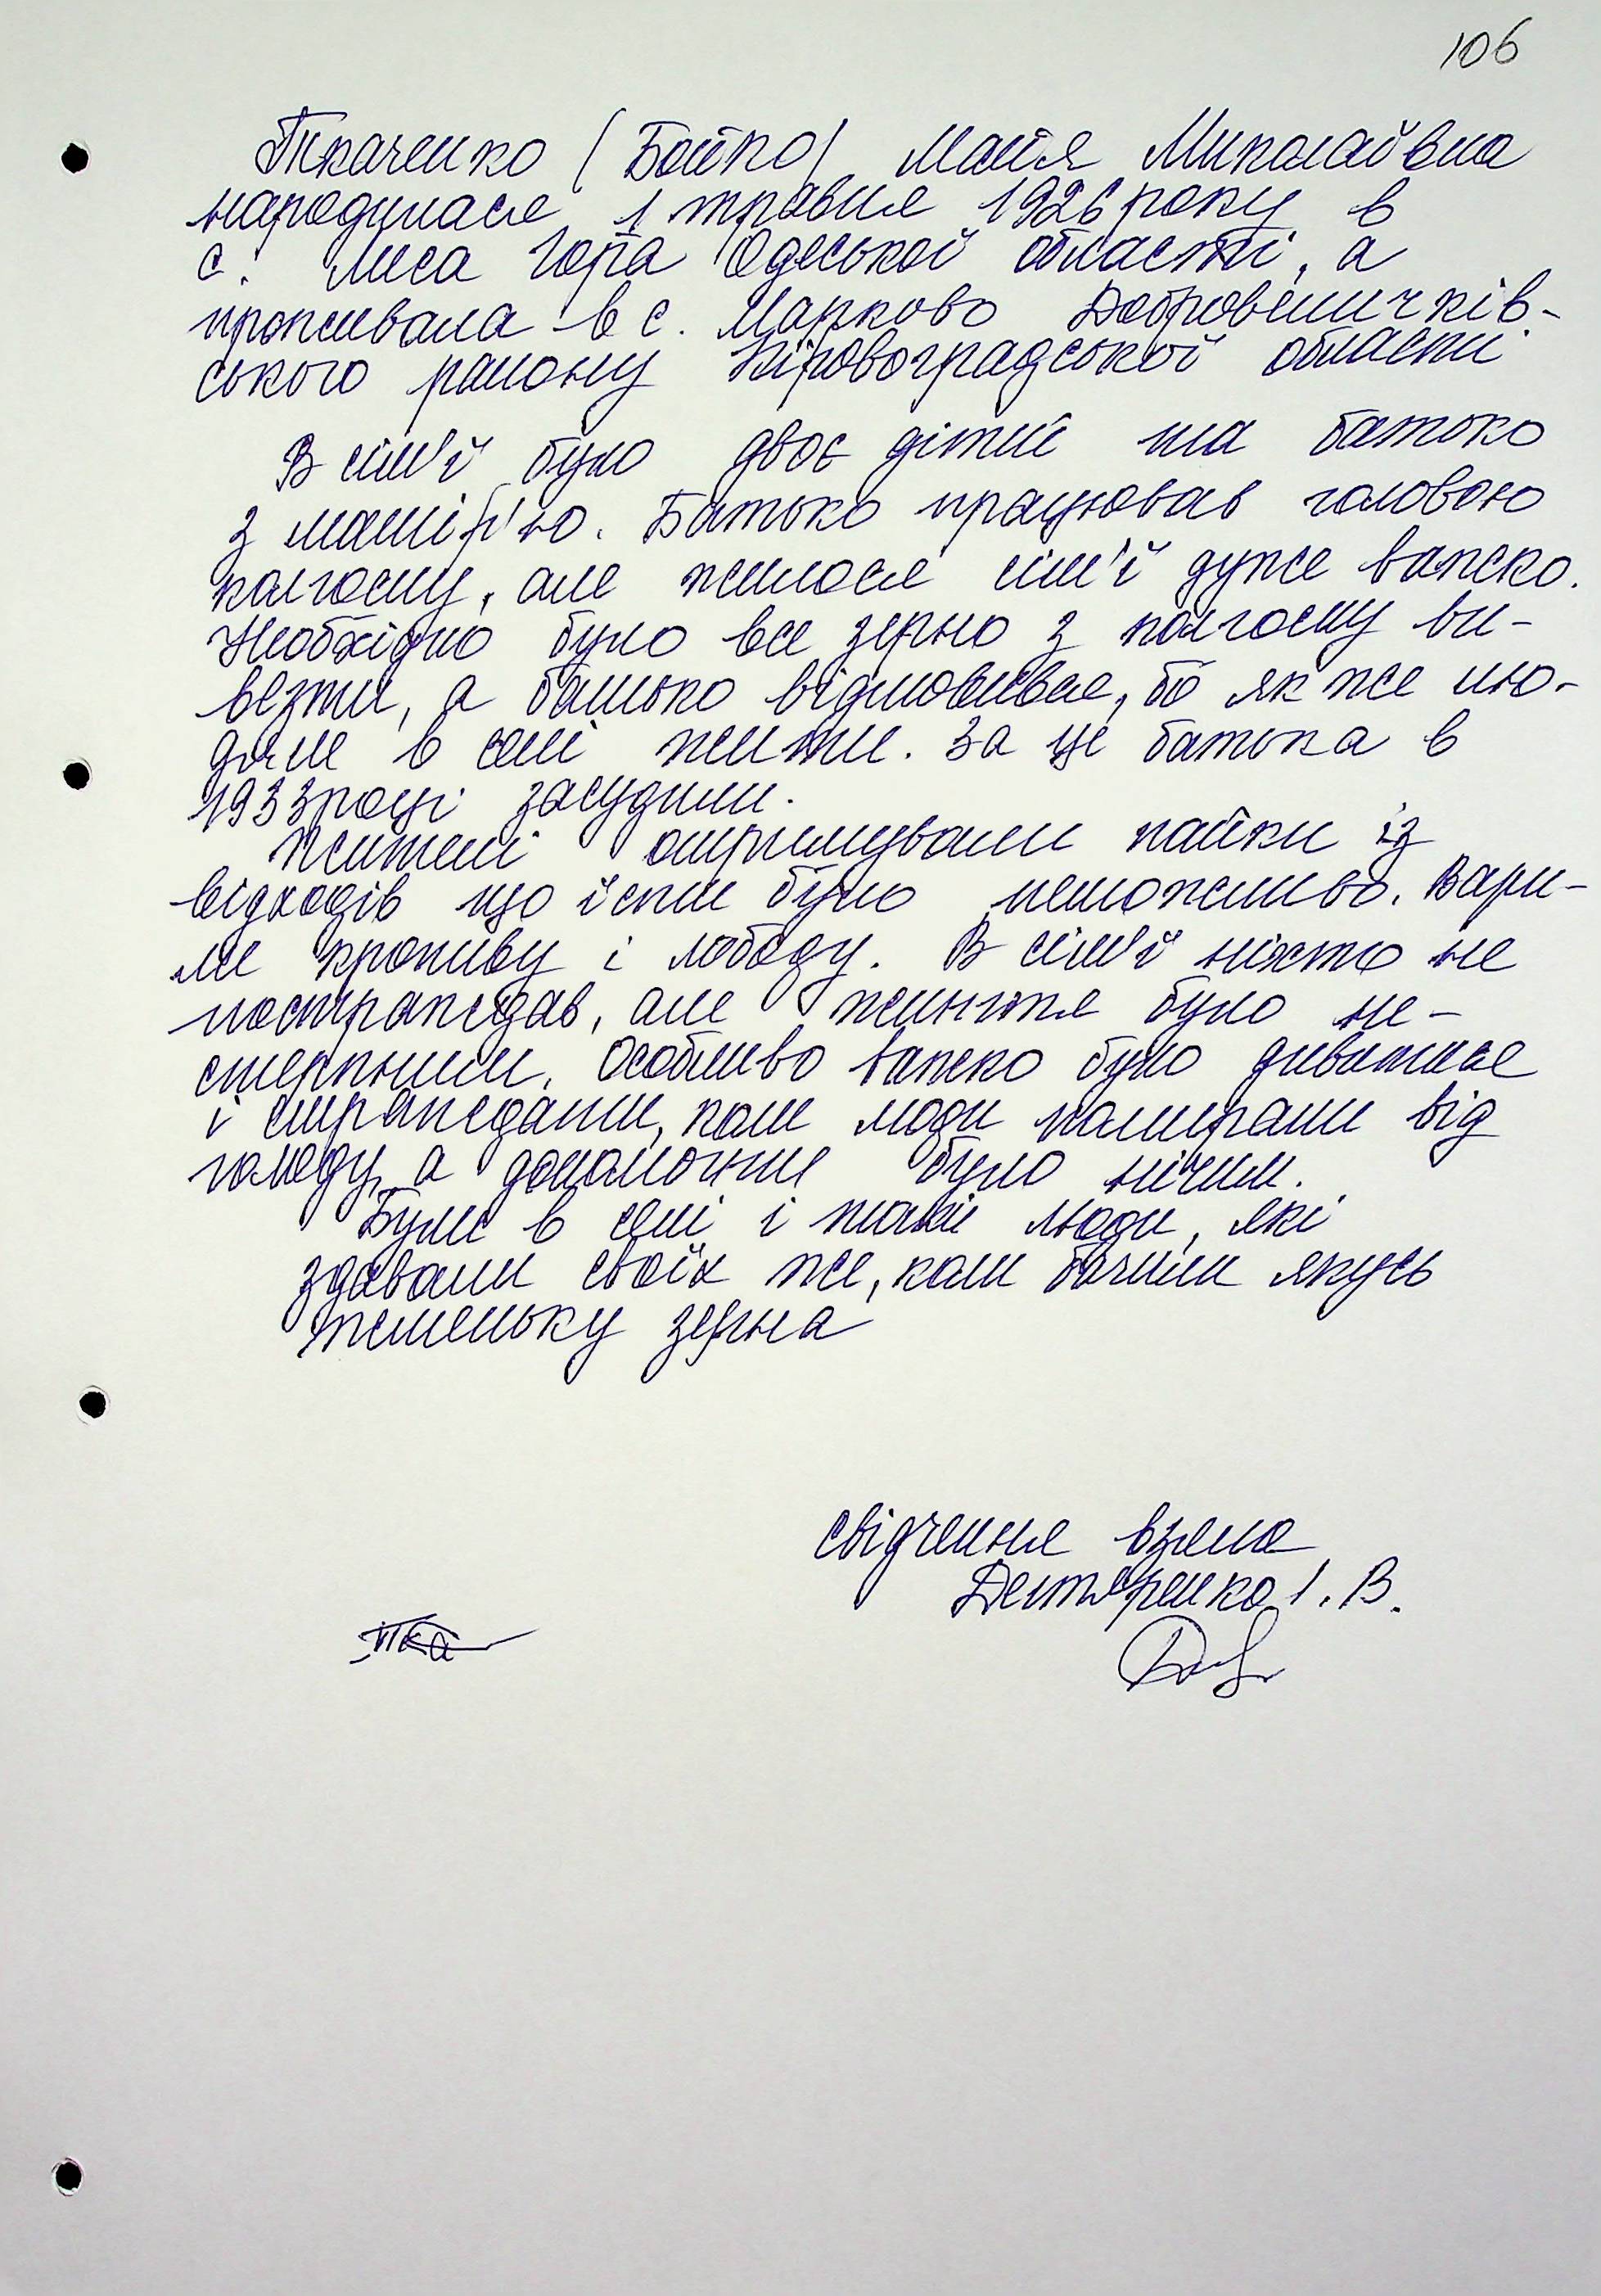 106
Ткаченко (Бойко) Майя Миколаївна
народилася 1 травня 1926 року в
с. Лиса Гора Одеської області, а
проживала в с. Марково Добровеличків-
ського району Кіровоградської області.
В сім'ї було двоє дітей та батько
з матір'ю. Батько працював головою
колгоспу, але жилося сім'ї дуже важко.
Необхідно було все зерно з колгоспу ви-
везти, а батько відмовився, бо як же лю-
дям в селі жити. За це батька в
1933 році засудили.
Жителі отримували пайки із
відходів що їсти було неможливо. Вари-
ли кропиву і лободу. В сім'ї ніхто не
постраждав, але життя було не-
стерпним. Особливо важко було дивитися
і страждати, коли люди помирали від
голоду, а допомогти було нічим.
Були в селі і такі люди, які
здавали своїх же, коли бачили якусь
жменьку зерна
свідчення взяла
Дегтяренко І. В.
Тка